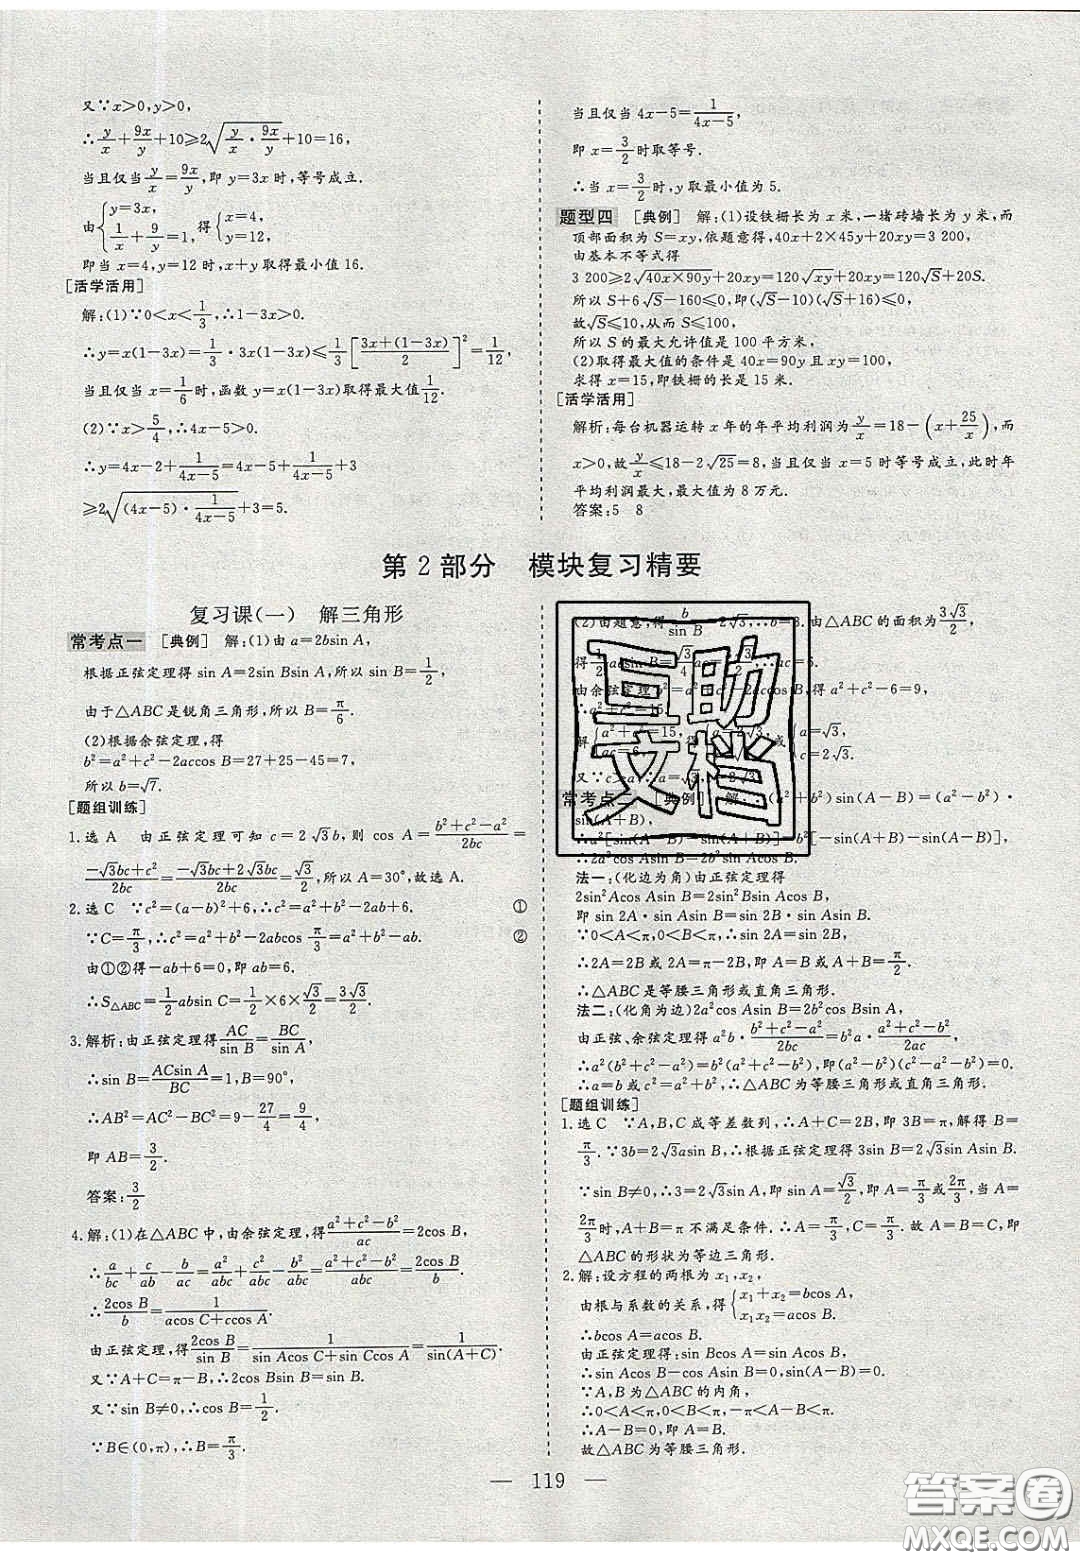 又∵x>0,y>0,
∴y/x+9x/y+10≥2√(y/x·9x/y)+10=16,
当且仅当y/x=9x/y,即y=3x时,等号成立.
由{y=3x, 1/x+9/y=1,得{x=4, y=12,
即当x=4,y=12时,x+y取得最小值16.
[活学活用]
解:(1)∵0<x<1/3,∴1-3x>0.
∴y=x(1-3x)=1/3·3x(1-3x)≤1/3[(3x+(1-3x))/2]²=1/12,
当且仅当x=1/6时,函数y=x(1-3x)取得最大值1/12.
(2)∵x>5/4,∴4x-5>0.
∴y=4x-2+1/(4x-5)=4x-5+1/(4x-5)+3
≥2√((4x-5)·1/(4x-5))+3=5.
当且仅当4x-5=1/(4x-5),
即x=3/2时取等号.
∴当x=3/2时,y取最小值为5.
题型四 [典例] 解:(1)设铁栅长为x米,一堵砖墙长为y米,而
顶部面积为S=xy,依题意得,40x+2×45y+20xy=3 200,
由基本不等式得
3 200≥2√(40x×90y)+20xy=120√(xy)+20xy=120√S+20S.
所以S+6√S-160≤0,即(√S-10)(√S+16)≤0,
故√S≤10,从而S≤100,
所以S的最大允许值是100平方米.
(2)取得最大值的条件是40x=90y且xy=100,
求得x=15,即铁栅的长是15米.
[活学活用]
解析:每台机器运转x年的年平均利润为y/x=18-(x+25/x),而
x>0,故y/x≤18-2√25=8,当且仅当x=5时等号成立,此时年
平均利润最大,最大值为8万元.
答案:5 8
第2部分 模块复习精要
复习课(一) 解三角形
常考点一 [典例] 解:(1)由a=2bsin A,
根据正弦定理得sin A=2sin Bsin A,所以sin B=1/2,
由于△ABC是锐角三角形,所以B=π/6.
(2)根据余弦定理,得
b²=a²+c²-2accos B=27+25-45=7,
所以b=√7.
[题组训练]
1.选A 由正弦定理可知c=2√3b,则cos A=(b²+c²-a²)/2bc=
(-√3bc+c²)/2bc=(-√3bc+2√3bc)/2bc=√3/2,所以A=30°,故选A.
2.选C ∵c²=(a-b)²+6,∴c²=a²+b²-2ab+6. ①
∵C=π/3,∴c²=a²+b²-2abcos π/3=a²+b²-ab. ②
由①②得-ab+6=0,即ab=6.
∴S△ABC=1/2absin C=1/2×6×√3/2=3√3/2.
3.解析:由正弦定理得AC/sin B=BC/sin A,
∴sin B=ACsin A/BC=1,B=90°,
∴AB²=AC²-BC²=9-27/4=9/4,
即AB=3/2.
答案:3/2
4.解:(1)在△ABC中,由余弦定理,得(a²+c²-b²)/ac=2cos B,
∴a/bc+c/ab-b/ac=a²/abc+c²/abc-b²/abc=(a²+c²-b²)/abc=2cos B/b
∴2cos B/b=1/(acos C+ccos A).
由正弦定理,得2cos B/sin B=1/(sin Acos C+sin Ccos A)=1/sin(A+C).
又∵A+C=π-B,∴2cos Bsin B=sin B.
又∵sin B≠0,∴cos B=1/2.
∵B∈(0,π),∴B=π/3.
(2)由题意,得b/sin B=2√3,∴b=3.由△ABC的面积为3√3/2,
由余弦定理b²=a²+c²-2accos B,得a²+c²-6=9,
互助
文档
常考点二 [典例] 解:
∴a²[sin(A-B)-sin(A+B)]=b²[-sin(A+B)-sin(A-B)],
∴2a²cos Asin B=2b²sin Acos B.
法一:(化边为角)由正弦定理得
2sin²Acos Asin B=2sin²Bsin Acos B,
即sin 2A·sin Asin B=sin 2B·sin Asin B.
∵0<A<π,0<B<π,∴sin 2A=sin 2B,
∴2A=2B或2A=π-2B,即A=B或A+B=π/2.
∴△ABC是等腰三角形或直角三角形.
法二:(化角为边)2a²cos Asin B=2b²cos Bsin A,
由正弦、余弦定理得a²b·(b²+c²-a²)/2bc=b²a·(a²+c²-b²)/2ac,
∴a²(b²+c²-a²)=b²(a²+c²-b²),即(a²-b²)(c²-a²-b²)=0.
∴a=b或c²=a²+b²,∴△ABC为等腰三角形或直角三角形.
[题组训练]
1.选C ∵A,B,C成等差数列,∴A+C=2B,即3B=π,解得B=
π/3.∵3b=2√3asin B,∴根据正弦定理得3sin B=2√3sin Asin B.
∵sin B≠0,∴3=2√3sin A,即sin A=√3/2,即A=π/3或2π/3,当A=
2π/3时,A+B=π不满足条件.∴A=π/3,C=π/3.故A=B=C,即
△ABC的形状为等边三角形.
2.解:设方程的两根为x₁,x₂,
由根与系数的关系,得{x₁+x₂=bcos A, x₁x₂=acos B.
∴bcos A=acos B.
由正弦定理得:sin Bcos A=sin Acos B,
∴sin Acos B-cos Asin B=0,sin(A-B)=0.
∵A,B为△ABC的内角,
∴0<A<π,0<B<π,-π<A-B<π.
∴A-B=0,即A=B.
故△ABC为等腰三角形.
— 119 —
答案圈
MXQE.COM